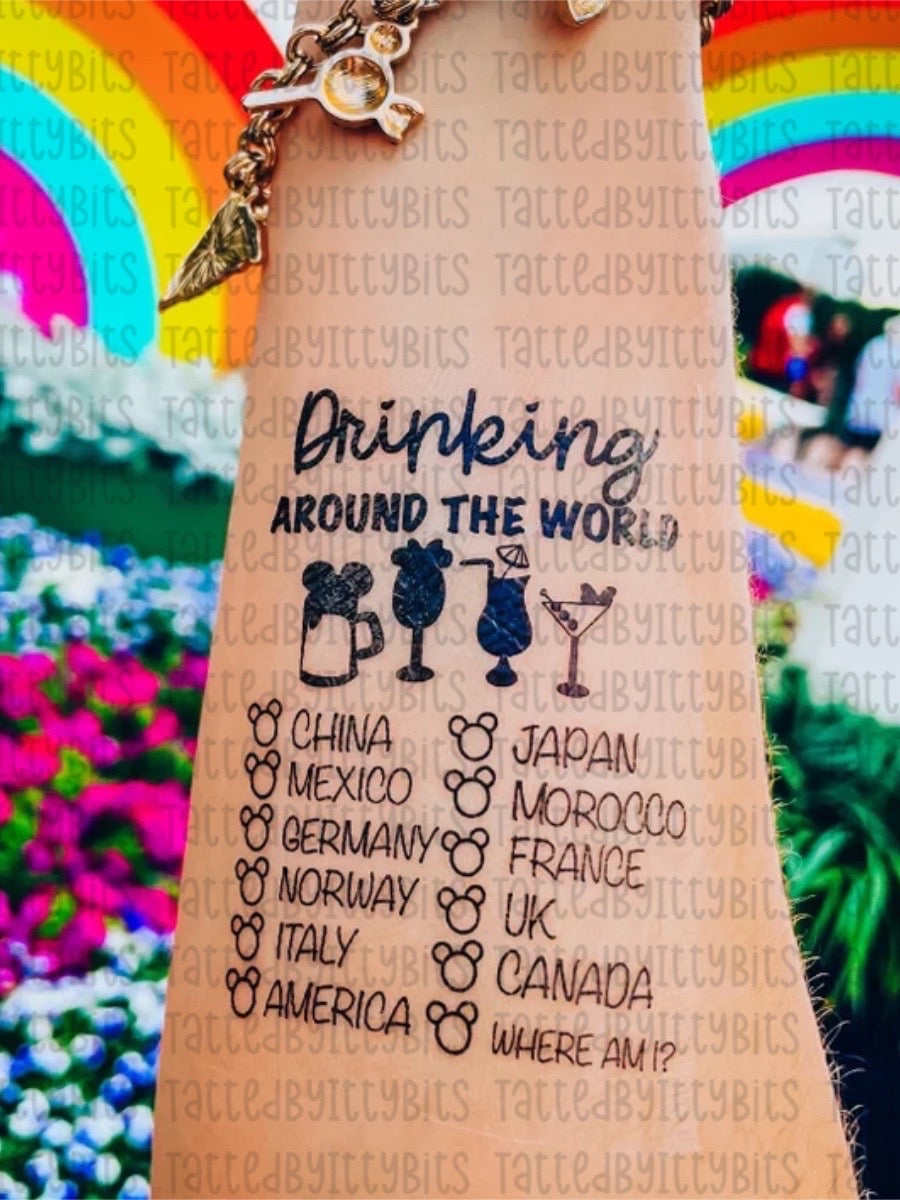 TattedByIttyBits
Drinking
AROUND THE WORLD
CHINA
MEXICO
GERMANY
NORWAY
ITALY
AMERICA
JAPAN
MOROCCO
FRANCE
UK
CANADA
WHERE AM I?